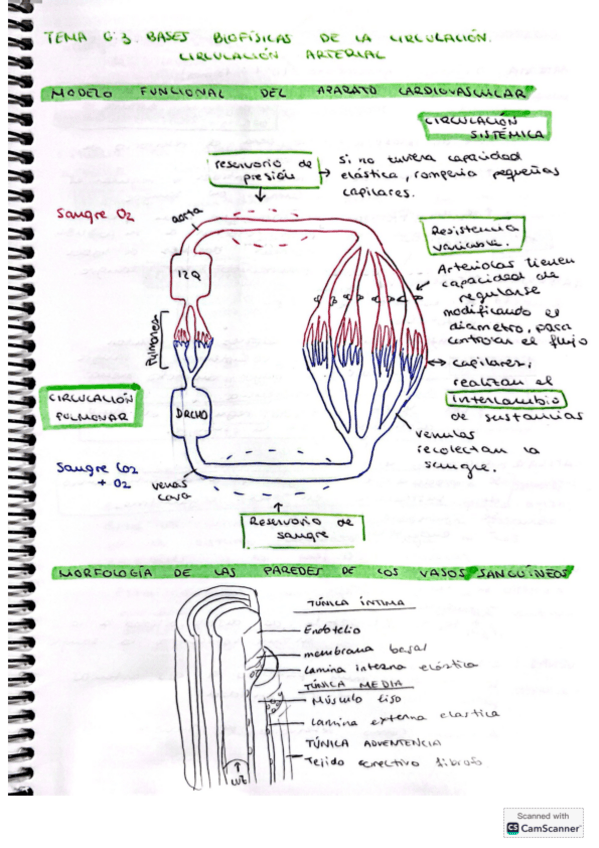 TEMA 6.3. BASES BIOFÍSICAS DE LA CIRCULACIÓN.
CIRCULACIÓN ARTERIAL
MODELO FUNCIONAL DEL APARATO CARDIOVASCULAR
CIRCULACIÓN
SISTÉMICA
reservorio de
presión
Si no tuviera capacidad
elástica, rompería pequeños
capilares.
Sangre O2
aorta
Resistencia
variable.
IZQ
Arteriolas tienen
capacidad de
regularse
modificando el
diametro, para
controlar el flujo
Pulmones
capilares:
realizan el
intercambio
de sustancias
CIRCULACIÓN
PULMONAR
DRCHO
venulas
recolectan la
sangre.
Sangre CO2
+ O2
venas
cava
Reservorio de
sangre
MORFOLOGÍA DE LAS PAREDES DE LOS VASOS SANGUÍNEOS
TÚNICA ÍNTIMA
Endotelio
membrana basal
Lamina interna elástica
TÚNICA MEDIA
Músculo liso
Lamina externa elastica
TÚNICA ADVENTENCIA
Tejido conectivo fibroso
LUZ
Scanned with
CS CamScanner